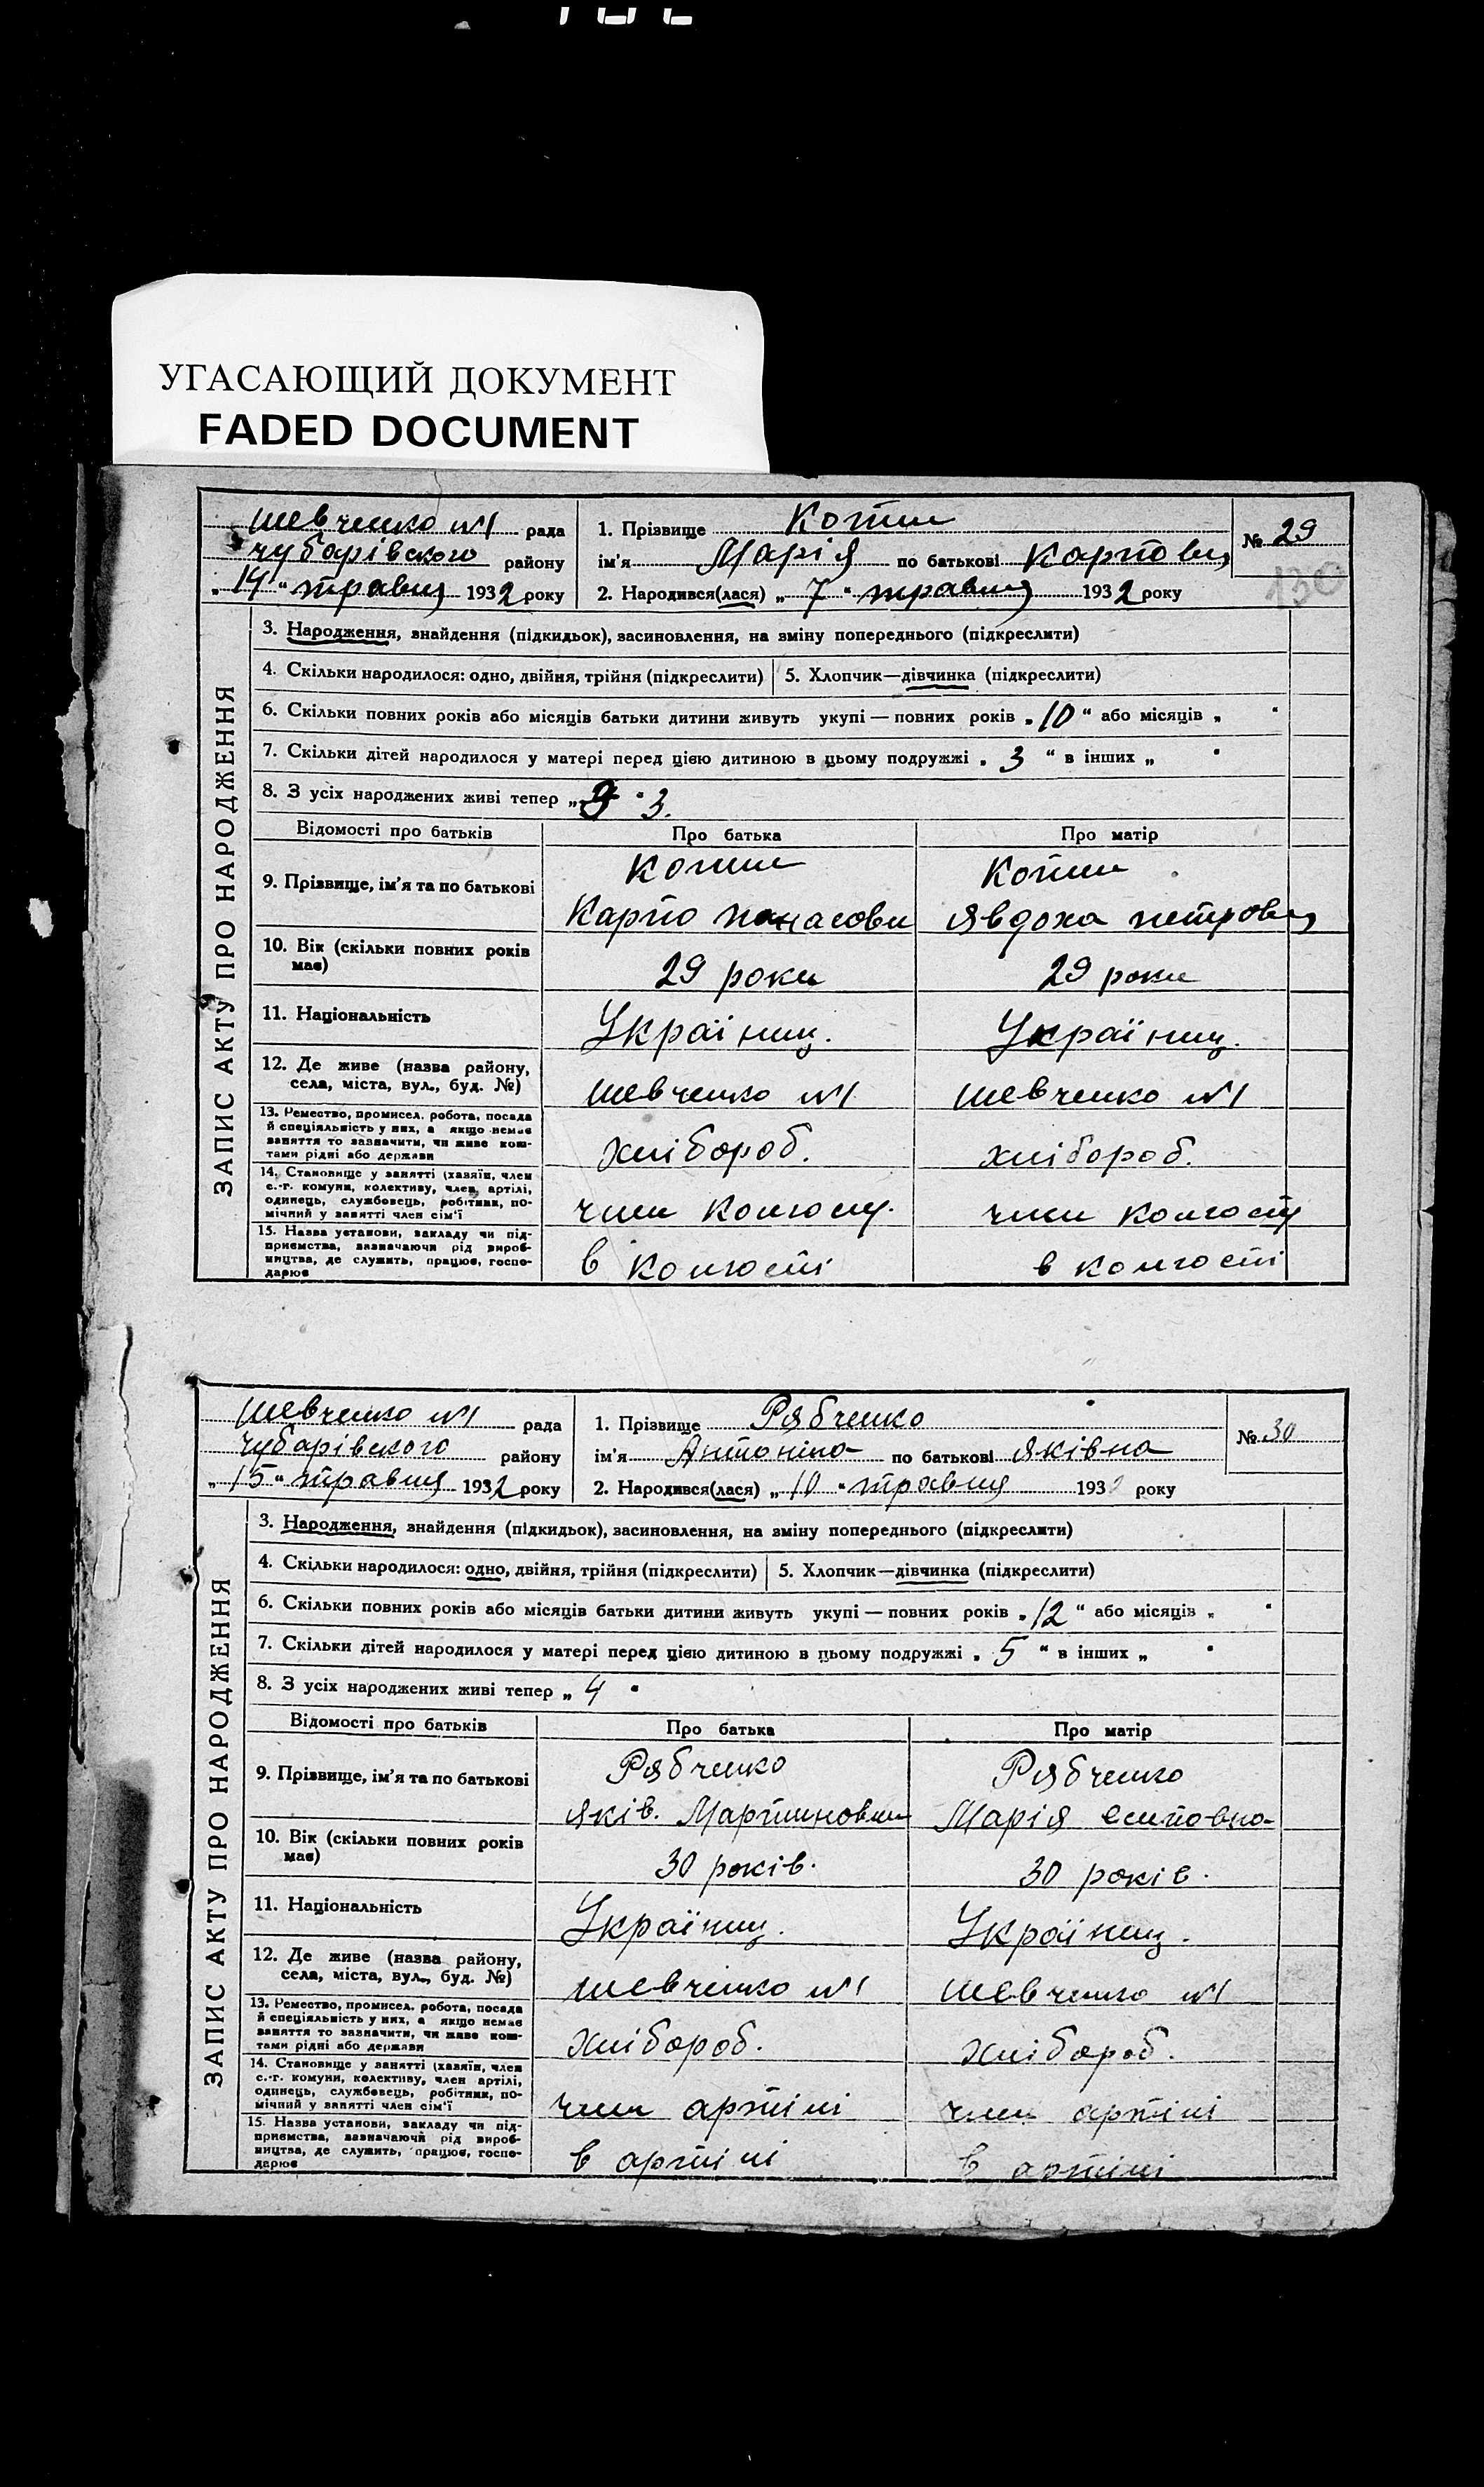 УГАСАЮЩИЙ ДОКУМЕНТ
FADED DOCUMENT
ЗАПИС АКТУ ПРО НАРОДЖЕННЯ
Шевченко №1 рада
Чубарівского району
„14“ травня 1932 року
1. Прізвище
ім'я Марія по батькові Карповн
2. Народився(лася) „7“ травня 1932 року
№ 29
130
3. Народження, знайдення (підкидьок), засиновлення, на зміну попереднього (підкреслити)
4. Скільки народилося: одно, двійня, трійня (підкреслити) 5. Хлопчик—дівчинка (підкреслити)
6. Скільки повних років або місяців батьки дитини живуть укупі — повних років „10“ або місяців „ “
7. Скільки дітей народилося у матері перед цією дитиною в цьому подружжі „3“ в інших „ “
8. З усіх народжених живі тепер „ “ 3.
Відомості про батьків Про батька Про матір
9. Прізвище, ім'я та по батькові
Карпо Панасови Явдоха Петровн
10. Вік (скільки повних років має) 29 роки 29 роки
11. Національність Україниц. Україниц.
12. Де живе (назва району, села, міста, вул., буд. №) Шевченко №1 Шевченко №1
13. Ремество, промисел, робота, посада й спеціяльність у них, а якщо немає заняття то зазначити, чи живе коштами рідні або держави хлібороб. хлібороб.
14. Становище у занятті (хазяїн, член с.-г. комуни, колективу, член артілі, одинець, службовець, робітник, помічний у занятті член сім'ї член колгоспу. член колгоспу
15. Назва установи, закладу чи підприємства, зазначаючи рід виробництва, де служить, працює, господарює в колгоспі в колгоспі
ЗАПИС АКТУ ПРО НАРОДЖЕННЯ
Шевченко №1 рада
Чубарівского району
„15“ травня 1932 року
1. Прізвище Рябченко
ім'я Антоніна по батькові Яківна
2. Народився(лася) „10“ травня 193 року
№ 30
3. Народження, знайдення (підкидьок), засиновлення, на зміну попереднього (підкреслити)
4. Скільки народилося: одно, двійня, трійня (підкреслити) 5. Хлопчик—дівчинка (підкреслити)
6. Скільки повних років або місяців батьки дитини живуть укупі — повних років „12“ або місяців „ “
7. Скільки дітей народилося у матері перед цією дитиною в цьому подружжі „5“ в інших „ “
8. З усіх народжених живі тепер „4“
Відомості про батьків Про батька Про матір
9. Прізвище, ім'я та по батькові Рябченко Рябченко
Яків. Мартинович Марія Есиповна
10. Вік (скільки повних років має) 30 років. 30 років.
11. Національність Україниц. Україниц.
12. Де живе (назва району, села, міста, вул., буд. №) Шевченко №1 Шевченко №1
13. Ремество, промисел, робота, посада й спеціяльність у них, а якщо немає заняття то зазначити, чи живе коштами рідні або держави хлібороб. хлібороб.
14. Становище у занятті (хазяїн, член с.-г. комуни, колективу, член артілі, одинець, службовець, робітник, помічний у занятті член сім'ї член артілі член артілі
15. Назва установи, закладу чи підприємства, зазначаючи рід виробництва, де служить, працює, господарює в артілі в артілі